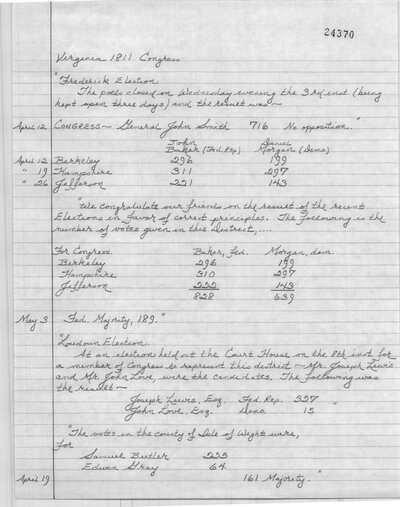 24370
Virginia 1811 Congress
"Frederick Election
The polls closed on Wednesday evening the 3rd inst (being
kept open three days) and the result was—
April 12 Congress— General John Smith 716 No opposition."
John Baker (Fed. Rep) Daniel Morgan (Demo)
April 12 Berkeley 296 199
" 19 Hampshire 311 297
" 26 Jefferson 221 143
"We congratulate our friends on the result of the recent
Elections in favor of correct principles. The following is the
number of votes given in this District,....
For Congress. Baker, Fed. Morgan, dem.
Berkeley 296 199
Hampshire 310 297
Jefferson 222 143
828 639
May 3 Fed. Majority, 189."
"Loudoun Election.
At an election held at the Court House on the 8th inst for
a number of Congress to represent this district — Mr. Joseph Lewis
and Mr. John Love, were the candidates. The following was
the result—
Joseph Lewis, Esq. Fed. Rep. 327
John Love, Esq. Demo. 15 "
"The votes in the county of Isle of Wight were,
For
Samuel Butler 225
Edwin Gray 64
April 19 161 Majority."